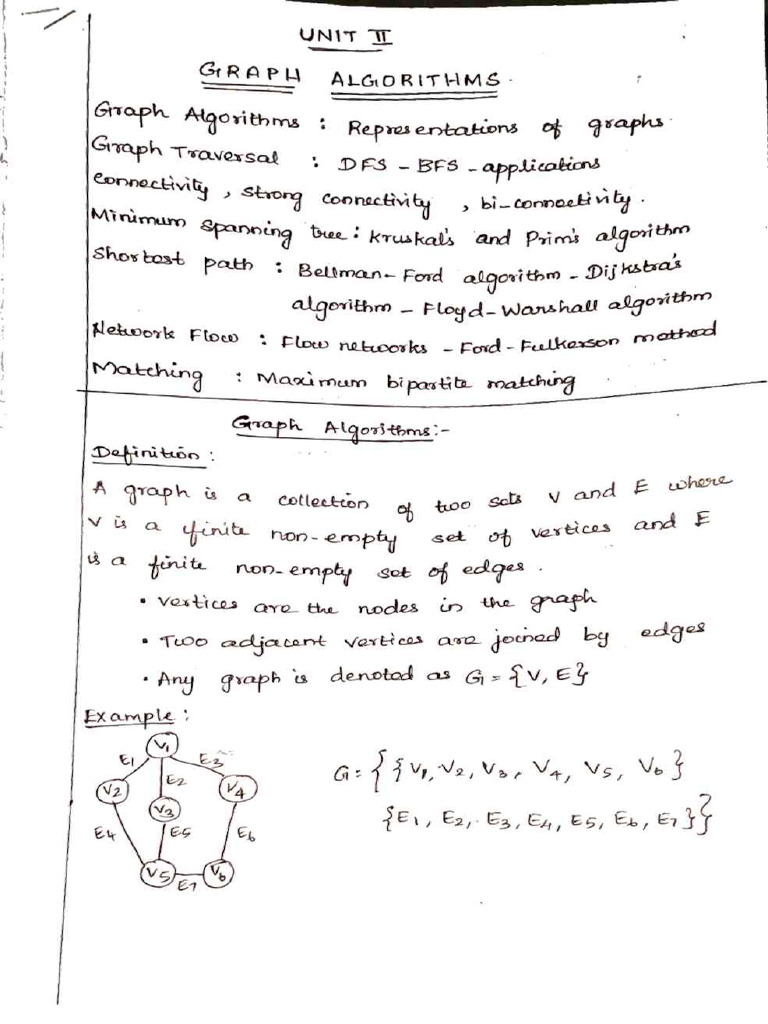 UNIT II
GRAPH ALGORITHMS.
Graph Algorithms : Representations of graphs.
Graph Traversal : DFS - BFS - applications
Connectivity, strong connectivity, bi-connectivity.
Minimum spanning tree : Kruskal's and Prim's algorithm
Shortest path : Bellman-Ford algorithm - Dijkstra's
algorithm - Floyd-Warshall algorithm
Network Flow : Flow networks - Ford-Fulkerson method
Matching : Maximum bipartite matching
Graph Algorithms:-
Definition :
A graph is a collection of two sets V and E where
V is a finite non-empty set of vertices and E
is a finite non-empty set of edges.
• Vertices are the nodes in the graph
• Two adjacent vertices are joined by edges
• Any graph is denoted as G = {V, E}
Example :
V1
E1 E3
E2
V2 V4
V3
E4 E5 E6
V5 V6
E7
G = { {V1, V2, V3, V4, V5, V6}
{E1, E2, E3, E4, E5, E6, E7}}